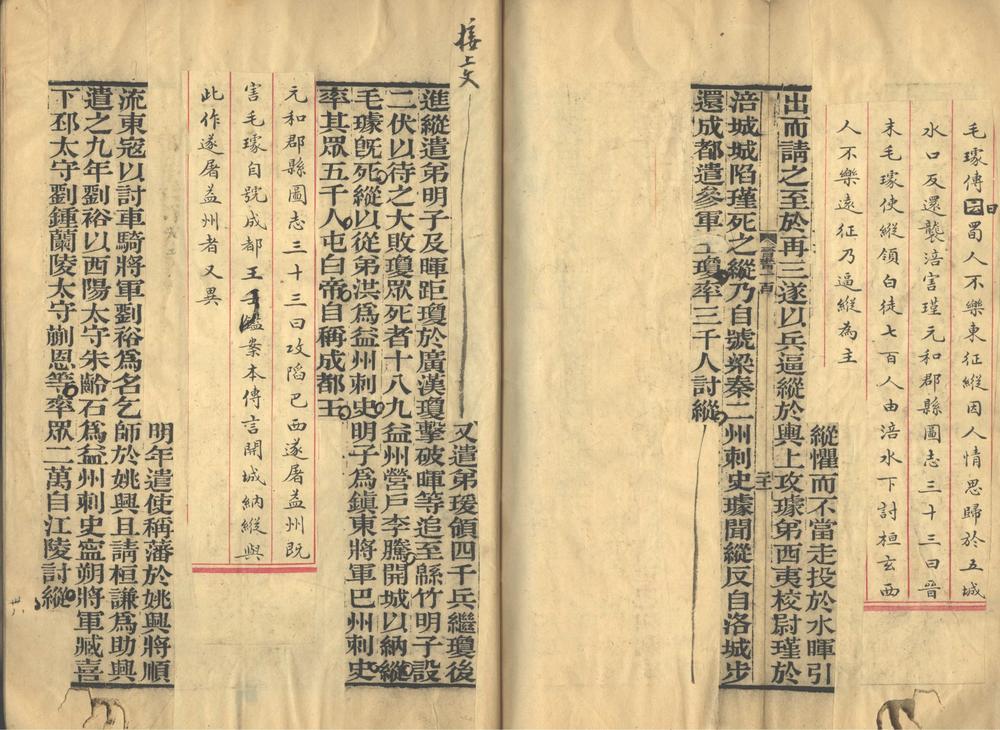 毛璩傳曰蜀人不樂東征縱因人情思歸於五城
水口反還襲涪害瑾元和郡縣圖志三十三曰晉
末毛璩使縱領白徒七百人由涪水下討桓玄西
人不樂遠征乃逼縱為主
縱懼而不當走投於水暉引
出而請之至於再三遂以兵逼縱於輿上攻璩弟西夷校尉瑾於
涪城城陷瑾死之縱乃自號梁秦二州刺史璩聞縱反自洛城步
還成都遣參軍王瓊率三千人討縱
接上文
又遣弟瑗領四千兵繼瓊後
進縱遣弟明子及暉距瓊於廣漢瓊擊破暉等追至緜竹明子設
二伏以待之大敗瓊眾死者十八九益州營戶李騰開城以納縱
毛璩旣死縱以從弟洪爲益州刺史明子爲鎮東將軍巴州刺史
率其眾五千人屯白帝自稱成都王
元和郡縣圖志三十三曰攻陷巴西遂屠益州既
害毛璩自號成都王案本傳言開城納縱與
此作遂屠益州者又異
明年遣使稱藩於姚興將順
流東寇以討車騎將軍劉裕爲名乞師於姚興且請桓謙爲助興
遣之九年劉裕以西陽太守朱齡石爲益州刺史寧朔將軍臧喜
下邳太守劉鍾蘭陵太守蒯恩等率眾二萬自江陵討縱
卅八